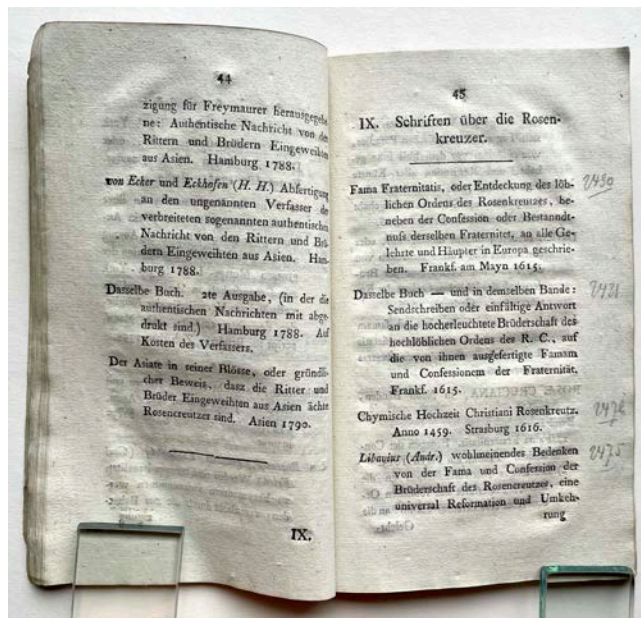 44
zigung für Freymaurer herausgegebe-
ne: Authentische Nachricht von den
Rittern und Brüdern Eingeweihten
aus Asien. Hamburg 1788.
von Ecker und Eckhofen (H. H.) Abfertigung
an den ungenannten Verfasser der
verbreiteten sogenannten authentischen
Nachricht von den Rittern und Brü-
dern Eingeweihten aus Asien. Ham-
burg 1788.
Dasselbe Buch. 2te Ausgabe, (in der die
authentischen Nachrichten mit abge-
drukt sind.) Hamburg 1788. Auf
Kosten des Verfassers.
Der Asiate in seiner Blösse, oder gründli-
cher Beweis, dasz die Ritter und
Brüder Eingeweihten aus Asien ächte
Rosencreutzer sind. Asien 1790.
IX.
45
IX. Schriften über die Rosen-
kreuzer.
Fama Fraternitatis, oder Entdeckung des löb-
lichen Ordens des Rosenkreutzes, be-
neben der Confession oder Bestanndt-
nuſs derselben Fraternitet, an alle Ge-
lehrte und Häupter in Europa geschrie-
ben. Frankf. am Mayn 1615.
2430
Dasselbe Buch — und in demselben Bande:
Sendschreiben oder einfältige Antwort
an die hocherleuchtete Brüderschaft des
hochlöblichen Ordens des R. C., auf
die von ihnen ausgefertigte Famam
und Confessionem der Fraternität.
Frankf. 1615.
2431
Chymische Hochzeit Christiani Rosenkreutz.
Anno 1459. Strasburg 1616.
Libavius (Andr.) wohlmeinendes Bedenken
von der Fama und Confession der
Brüderschaft des Rosencreutzer, eine
universal Reformation und Umkeh-
rung
2475